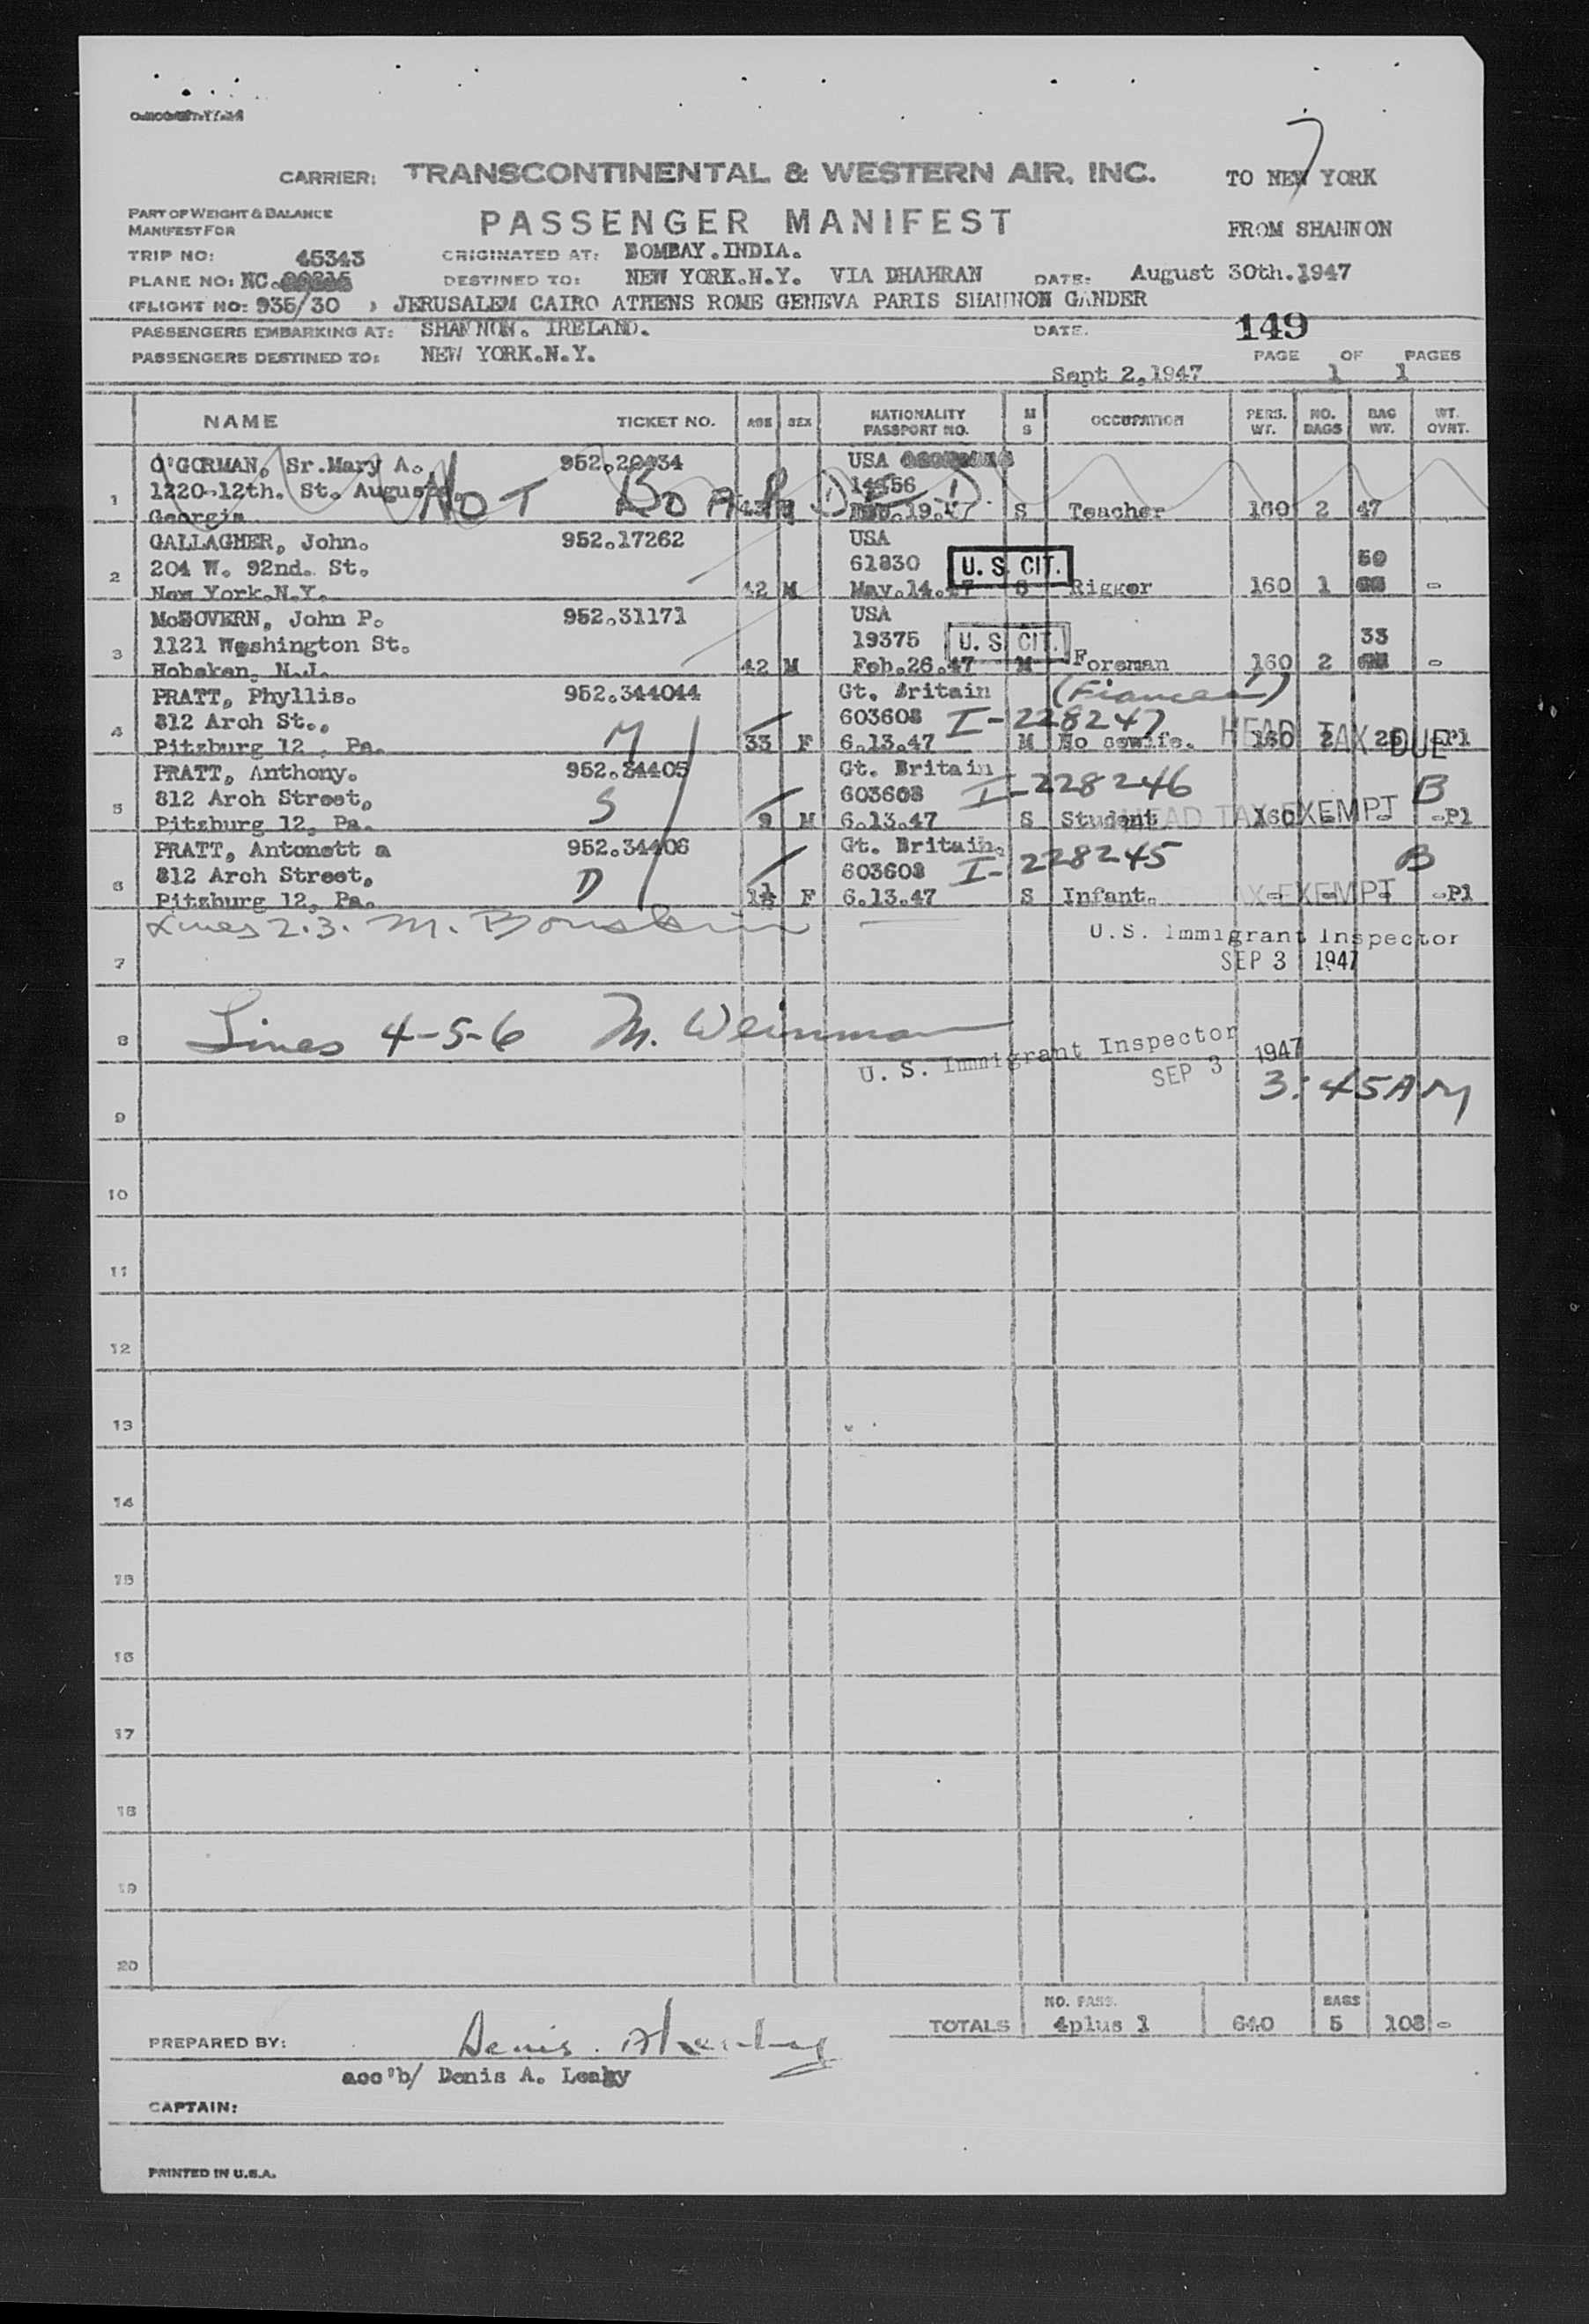 7
CARRIER: TRANSCONTINENTAL & WESTERN AIR, INC. TO NEW YORK
PART OF WEIGHT & BALANCE
MANIFEST FOR
PASSENGER MANIFEST FROM SHANNON
TRIP NO: 45343 ORIGINATED AT: BOMBAY.INDIA.
PLANE NO: NC. DESTINED TO: NEW YORK.N.Y. VIA DHAHRAN DATE: August 30th.1947
(FLIGHT NO: 935/30 ) JERUSALEM CAIRO ATHENS ROME GENEVA PARIS SHANNON GANDER
PASSENGERS EMBARKING AT: SHANNON. IRELAND. DATE. 149
PASSENGERS DESTINED TO: NEW YORK.N.Y. PAGE OF PAGES
Sept 2,1947 1 1
NAME TICKET NO. AGE SEX NATIONALITY PASSPORT NO. M S OCCUPATION PERS. WT. NO. BAGS BAG WT. WT. OVRT.
O'GORMAN, Sr.Mary A. 952.20434 USA
1220-12th. St. August
NOT BOARDED
1 Georgia S Teacher 160 2 47
GALLAGHER, John. 952.17262 USA
2 204 W. 92nd. St. 61830 U.S. CIT. 50
New York.N.Y. 42 M May.14.47 S Rigger 160 1 -
McGOVERN, John P. 952.31171 USA
3 1121 Washington St. 19375 U.S. CIT. 33
Hoboken, N.J. 42 M Feb.26.47 M Foreman 160 2 -
PRATT, Phyllis. 952.344044 Gt. Britain (Fiancee)
4 812 Arch St., M 603608 I-228247 HEAD TAX DUE
Pitzburg 12, Pa. 33 F 6.13.47 M Ho sewife. 160 2 25 -Pl
PRATT, Anthony. 952.34405 Gt. Britain I-228246
5 812 Arch Street, S 603608 B HEAD TAX EXEMPT
Pitzburg 12, Pa. 9 M 6.13.47 S Student 160 - - -Pl
PRATT, Antonett a 952.34406 Gt. Britain. I-228245
6 812 Arch Street, D 603608 B TAX EXEMPT
Pitzburg 12, Pa. 1½ F 6.13.47 S Infant. - - - -Pl
Lines 2.3. M. U.S. Immigrant Inspector
7 SEP 3 1947
8 Lines 4-5-6 M. Weinman U. S. Immigrant Inspector
SEP 3 1947
3:45AM
9
10
11
12
13
14
15
16
17
18
19
20
NO. PASS. BAGS
TOTALS 4plus 1 640 5 108 -
PREPARED BY: Denis A Leahy
acc'b/ Denis A. Leahy
CAPTAIN:
PRINTED IN U.S.A.